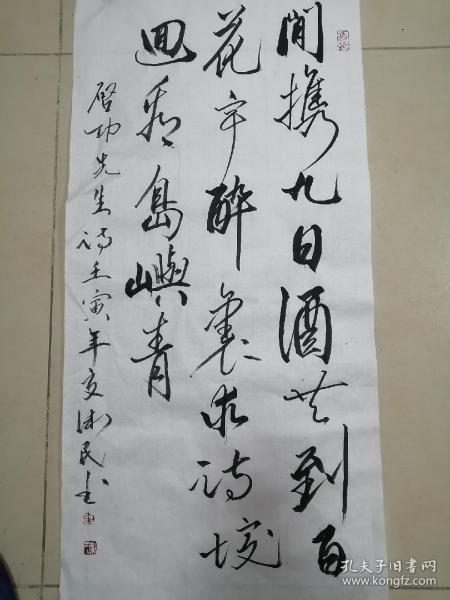 閒携九日酒共到百
花亭醉裏求诗境
迴看島嶼青
啓功先生诗壬寅年夏民书
孔夫子旧书网
www.kongfz.com